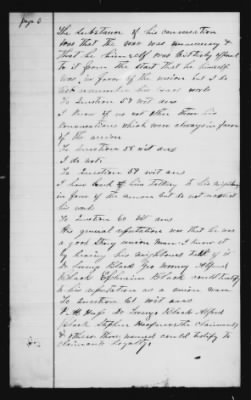 Page 6
The substance of his conversation
was that the war was unnecessary &
that he himself was bitterly opposed
to it from the start that he himself
was in favor of the union but I do
not remember his exact words
To Question 57 wit ans
I know of no not other than his
conversations which were always in favor
of the union
To Question 58 wit ans
I do not.
To Question 59 wit ans
I have heard of him talking to his neighbors
in favor of the union but do not recollect
his words
To Question 60 wit ans
His general reputation was that he was
a good strong union man. I know it
by hearing his neighbours talk of it
Dr Black Geo Alfred
Black Ephraim Black could testify
to his reputation as a union man
To Question 61 wit ans
Dr Black Alfred
Black Stephen the claimant
& others those named could testify to
claimants loyalty.